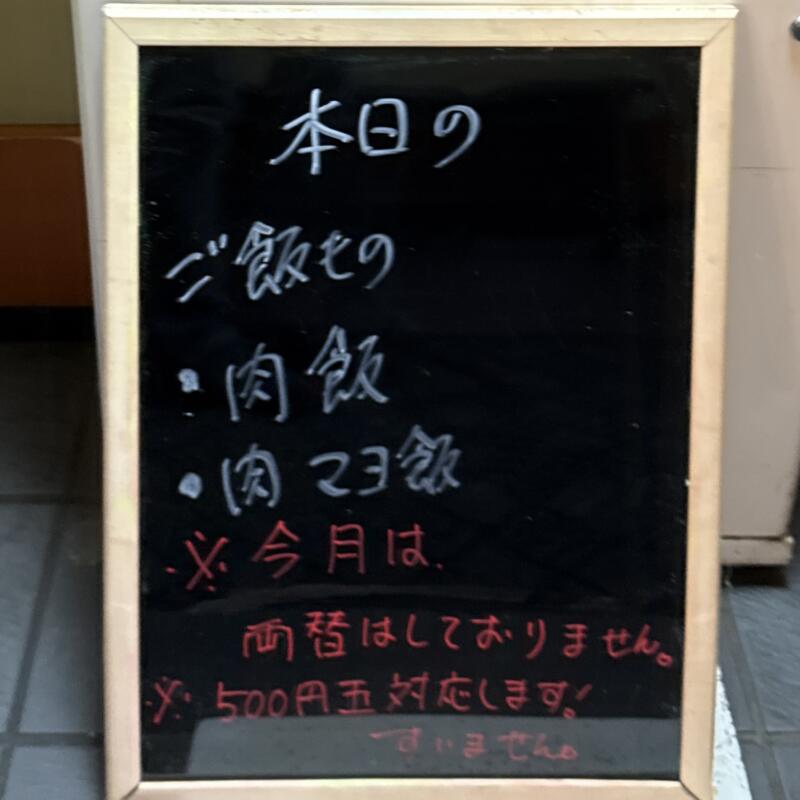 本日の
ご飯もの
・肉飯
・肉マヨ飯
※今月は、
両替はしておりません。
※500円玉対応します!
すいません。